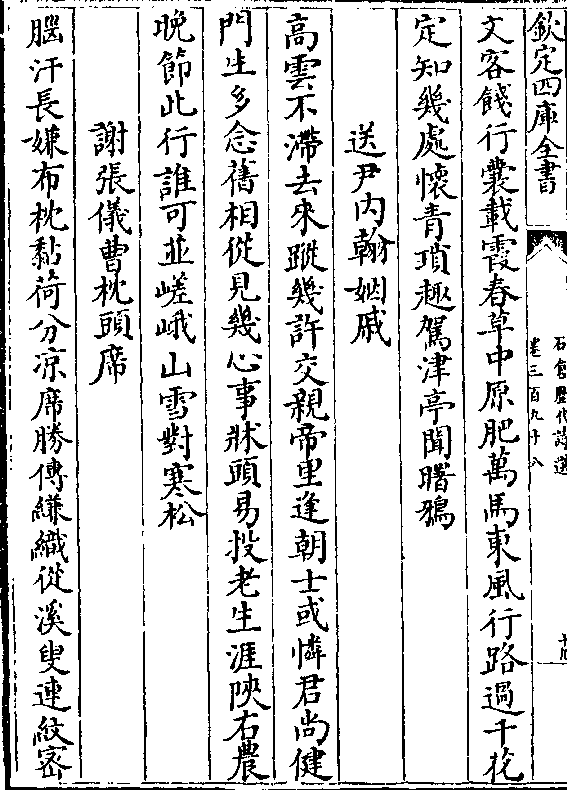 欽定四庫全書
石倉歷代詩選
卷三百九十八
文客餞行囊載霞春草中原肥萬馬東風行路過千花
定知幾處懷青瑣趣駕津亭聞曙鴉
送尹内翰姻戚
高雲不滯去來蹤幾許交親帝里逢朝士或憐君尚健
門生多念舊相從見幾心事牀頭易投老生涯陜右農
晩節此行誰可並嵯峨山雪對寒松
謝張儀曹枕頭席
腦汗長嫌布枕黏荷分凉席勝傳縑織從溪叟連紋密